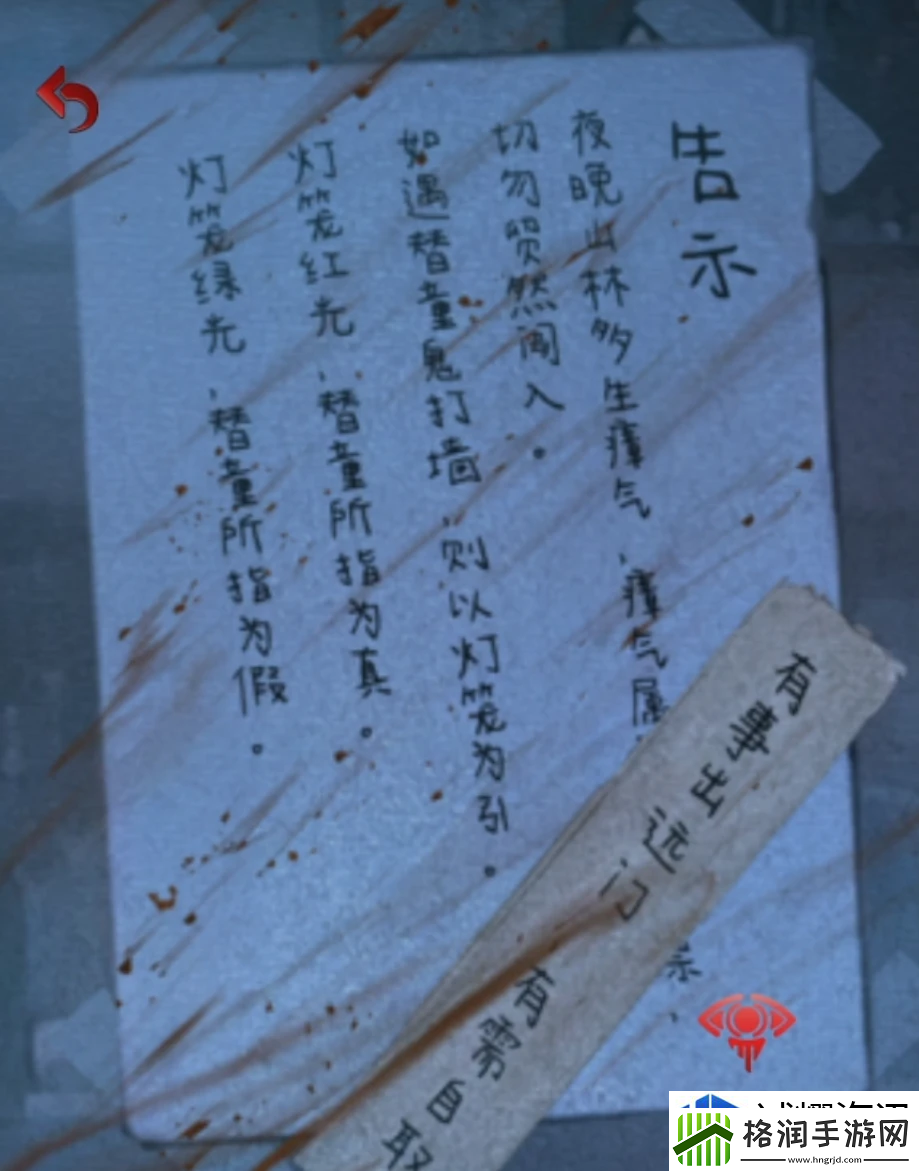 告示
夜晚山林多生瘴气，瘴气属
切勿贸然闯入。
如遇替童鬼打墙，则以灯笼为引。
灯笼红光，替童所指为真。
灯笼绿光，替童所指为假。
有事出远门
有需自取
格润手游网
www.hngrjd.com